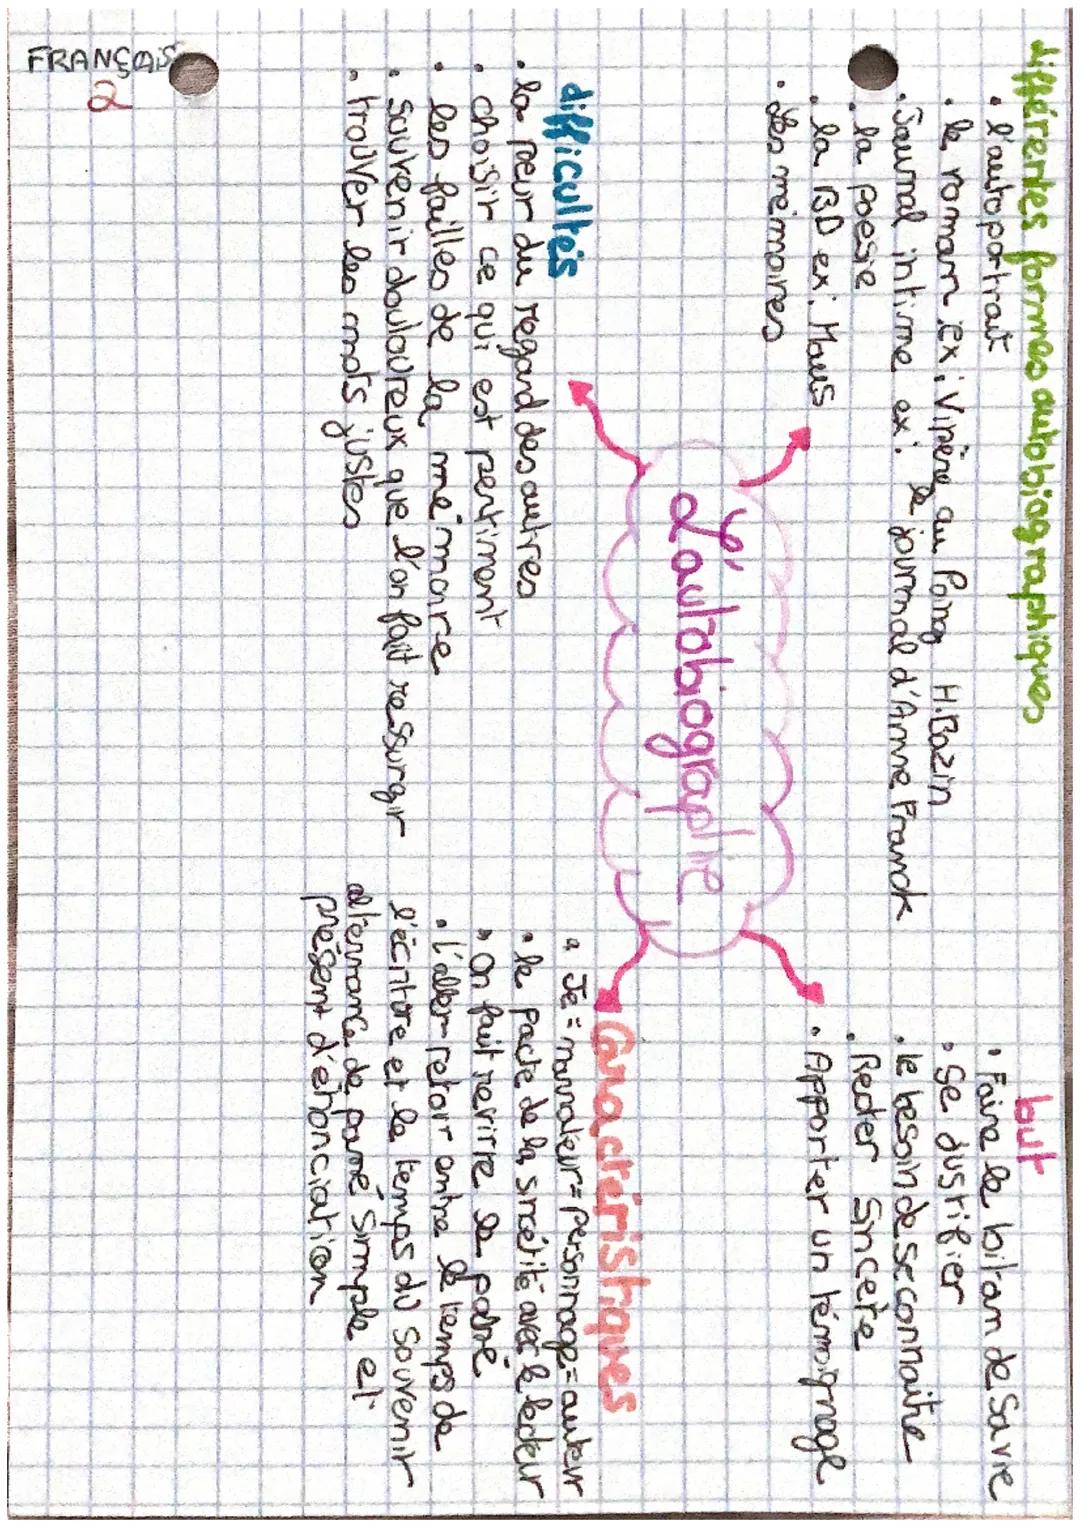 FRANÇAIS
2
différentes formes autobiographiques
• l'autoportrait
• le roman ex: Vipère au Poing H.Bazin
• Journal intime ex: le journal d'Anne Franck
• la poésie
• la BD ex: Maus
• Les mémoires
but
• Faire le bilan de sa vie
• Se justifier
• le besoin de se connaitre
• Rester sincère
• Apporter un témoignage
L'autobiographie
difficultés
• la peur du regard des autres
• choisir ce qui est pertinent
• les failles de la mémoire
• souvenir douloureux que l'on fait ressurgir
• trouver les mots justes
Caractéristiques
• Je = narrateur = personnage = auteur
• le pacte de la sincérité avec le lecteur
• On fait revivre le passé
• l'aller-retour entre le temps de
l'écriture et le temps du souvenir
alternance de passé simple et
présent d'énonciation